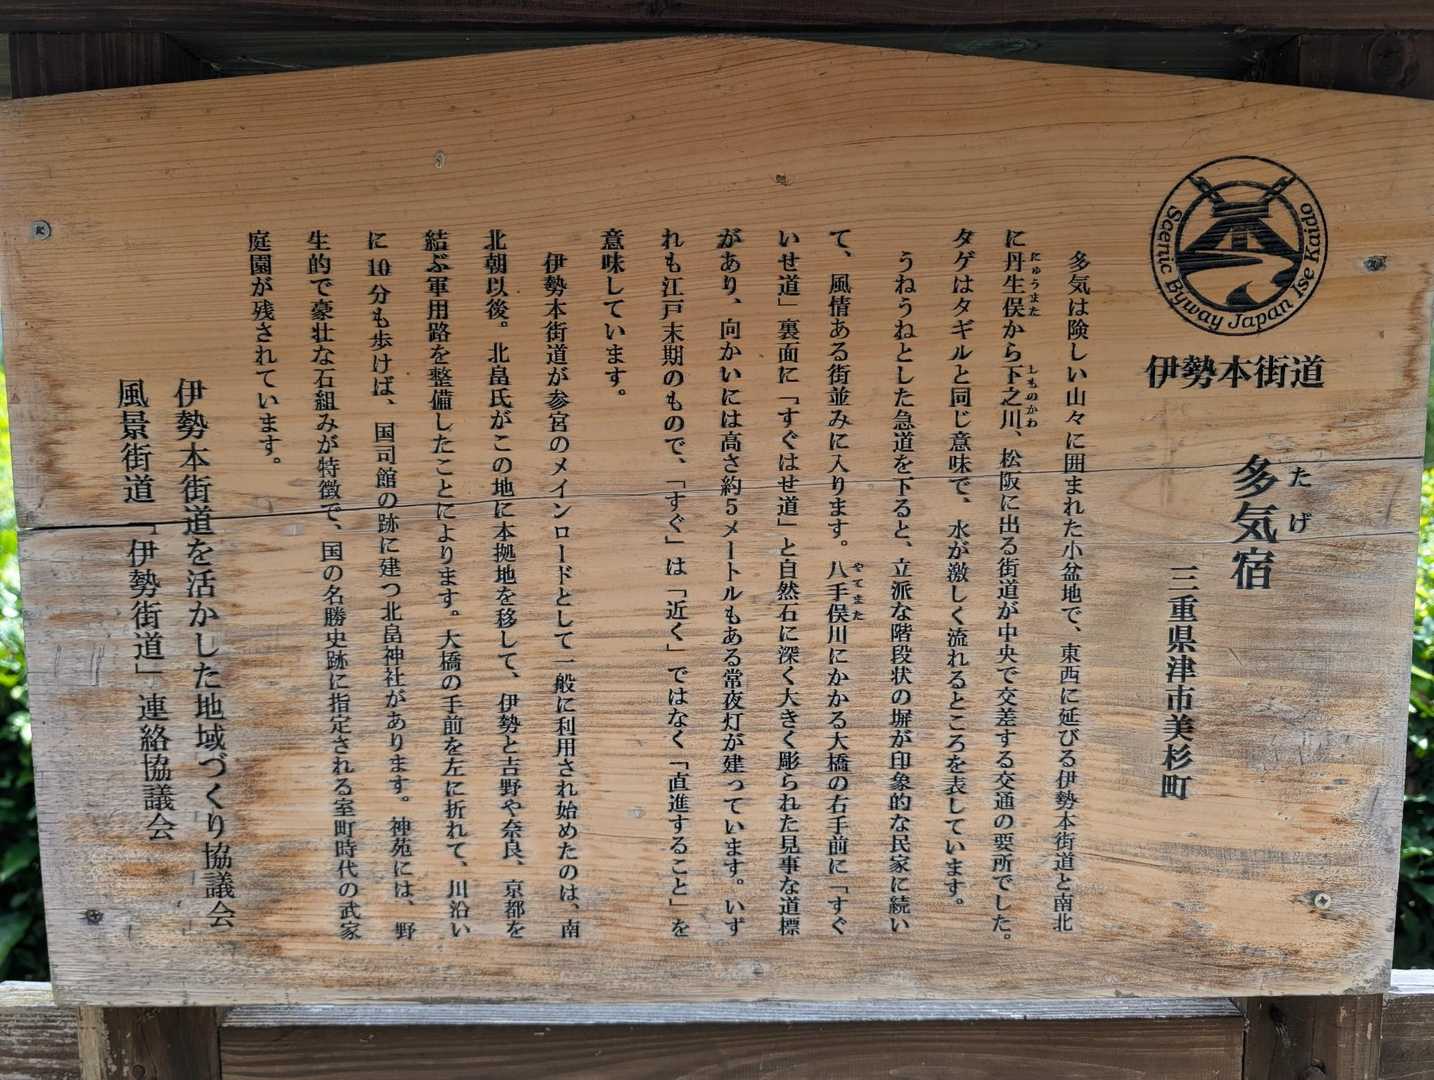 Scenic Byway Japan Ise Kaido
伊勢本街道
たげ
多気宿
三重県津市美杉町
多気は険しい山々に囲まれた小盆地で、東西に延びる伊勢本街道と南北
に丹生俣から下之川、松阪に出る街道が中央で交差する交通の要所でした。
にゅうまた
しものかわ
タゲはタギルと同じ意味で、水が激しく流れるところを表しています。
うねうねとした急道を下ると、立派な階段状の塀が印象的な民家に続い
て、風情ある街並みに入ります。八手俣川にかかる大橋の右手前に「すぐ
やてまた
いせ道」裏面に「すぐはせ道」と自然石に深く大きく彫られた見事な道標
があり、向かいには高さ約5メートルもある常夜灯が建っています。いず
れも江戸末期のもので、「すぐ」は「近く」ではなく「直進すること」を
意味しています。
伊勢本街道が参宮のメインロードとして一般に利用され始めたのは、南
北朝以後。北畠氏がこの地に本拠地を移して、伊勢と吉野や奈良、京都を
結ぶ軍用路を整備したことによります。大橋の手前を左に折れて、川沿い
に10分も歩けば、国司館の跡に建つ北畠神社があります。神苑には、野
生的で豪壮な石組みが特徴で、国の名勝史跡に指定される室町時代の武家
庭園が残されています。
伊勢本街道を活かした地域づくり協議会
風景街道「伊勢街道」連絡協議会